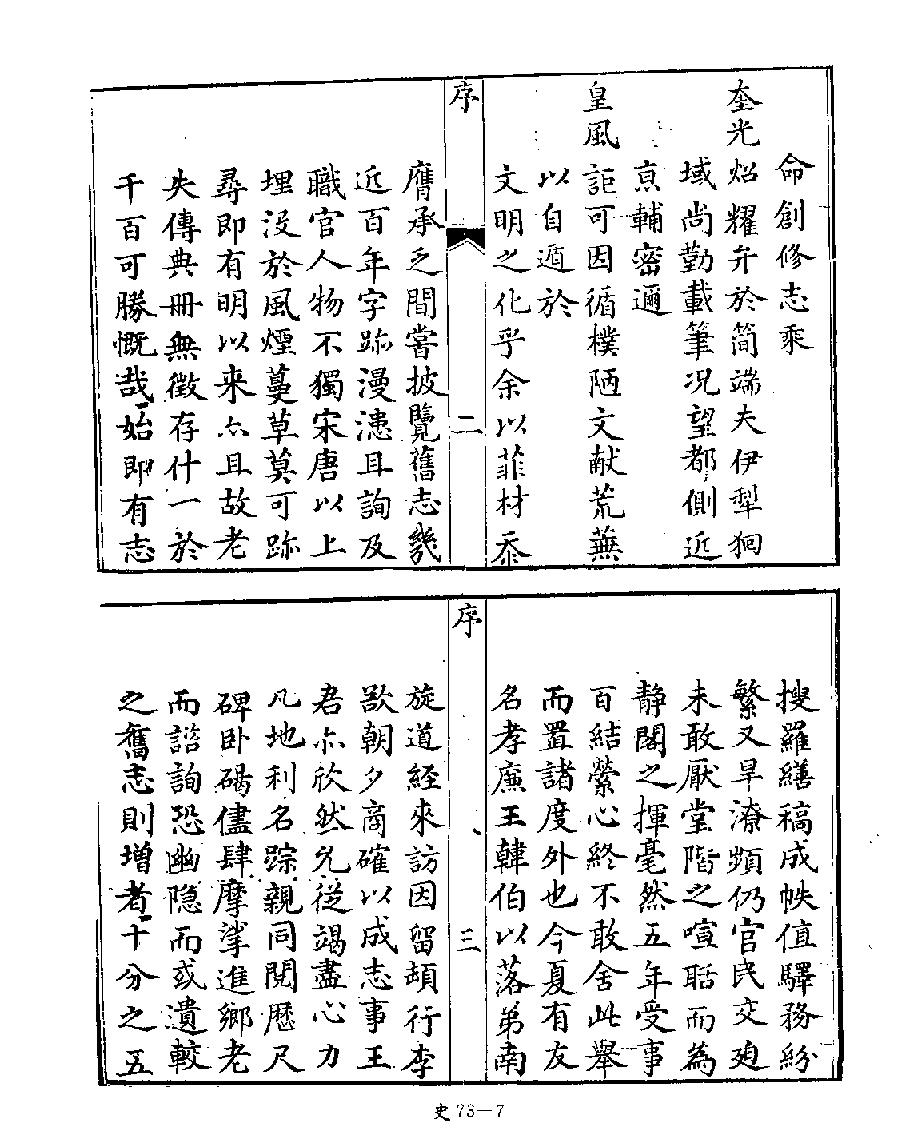 命創修志乘
奎光炤耀弁於简端夫伊犁狪
域尚勤載筆况望都側近
京輔密邇
皇風詎可因循樸陋文献荒蕪
以自遁於
文明之化乎余以菲材忝
序
二
膺承乏間嘗披覽舊志幾
近百年字跡漫漶且詢及
職官人物不獨宋唐以上
埋没於風煙蔓草莫可跡
尋即有明以来亦且故老
失傳典冊無徵存什一於
千百可勝慨哉始即有志
搜羅繕稿成帙值驛務紛
繁又旱潦頻仍官民交廹
未敢厭堂階之喧聒而為
静閣之揮毫然五年受事
百結縈心終不敢舍此舉
而置諸度外也今夏有友
名孝廉王韓伯以落第南
序
三
旋道經來訪因留頓行李
欲朝夕商確以成志事王
君亦欣然允從竭盡心力
凡地利名踪親同閱歷尺
碑卧碣儘肆摩挲進鄉老
而諮詢恐幽隐而或遺較
之舊志則增者十分之五
史 73—7